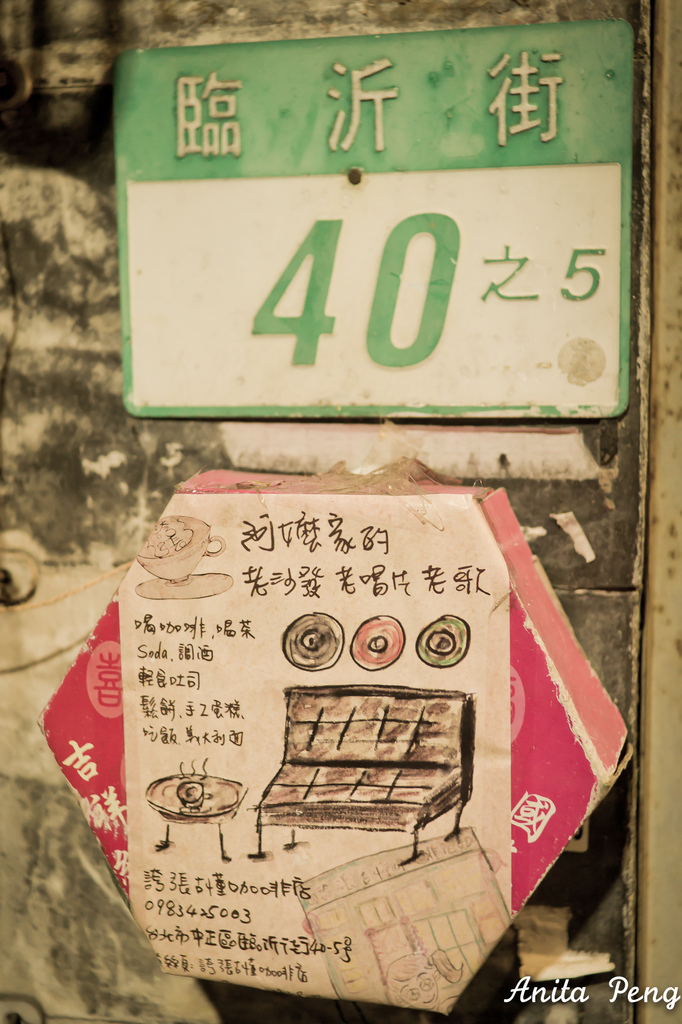 臨沂街
40之5
阿嬤家的
老沙發 老唱片 老歌
喝咖啡.喝茶
Soda.調酒
輕食吐司
鬆餅.手工蛋糕
吃飯.義大利麵
誇張古懂咖啡店
0983425003
台北市中正區臨沂街40-5号
誇張古懂咖啡店
吉祥
Anita Peng